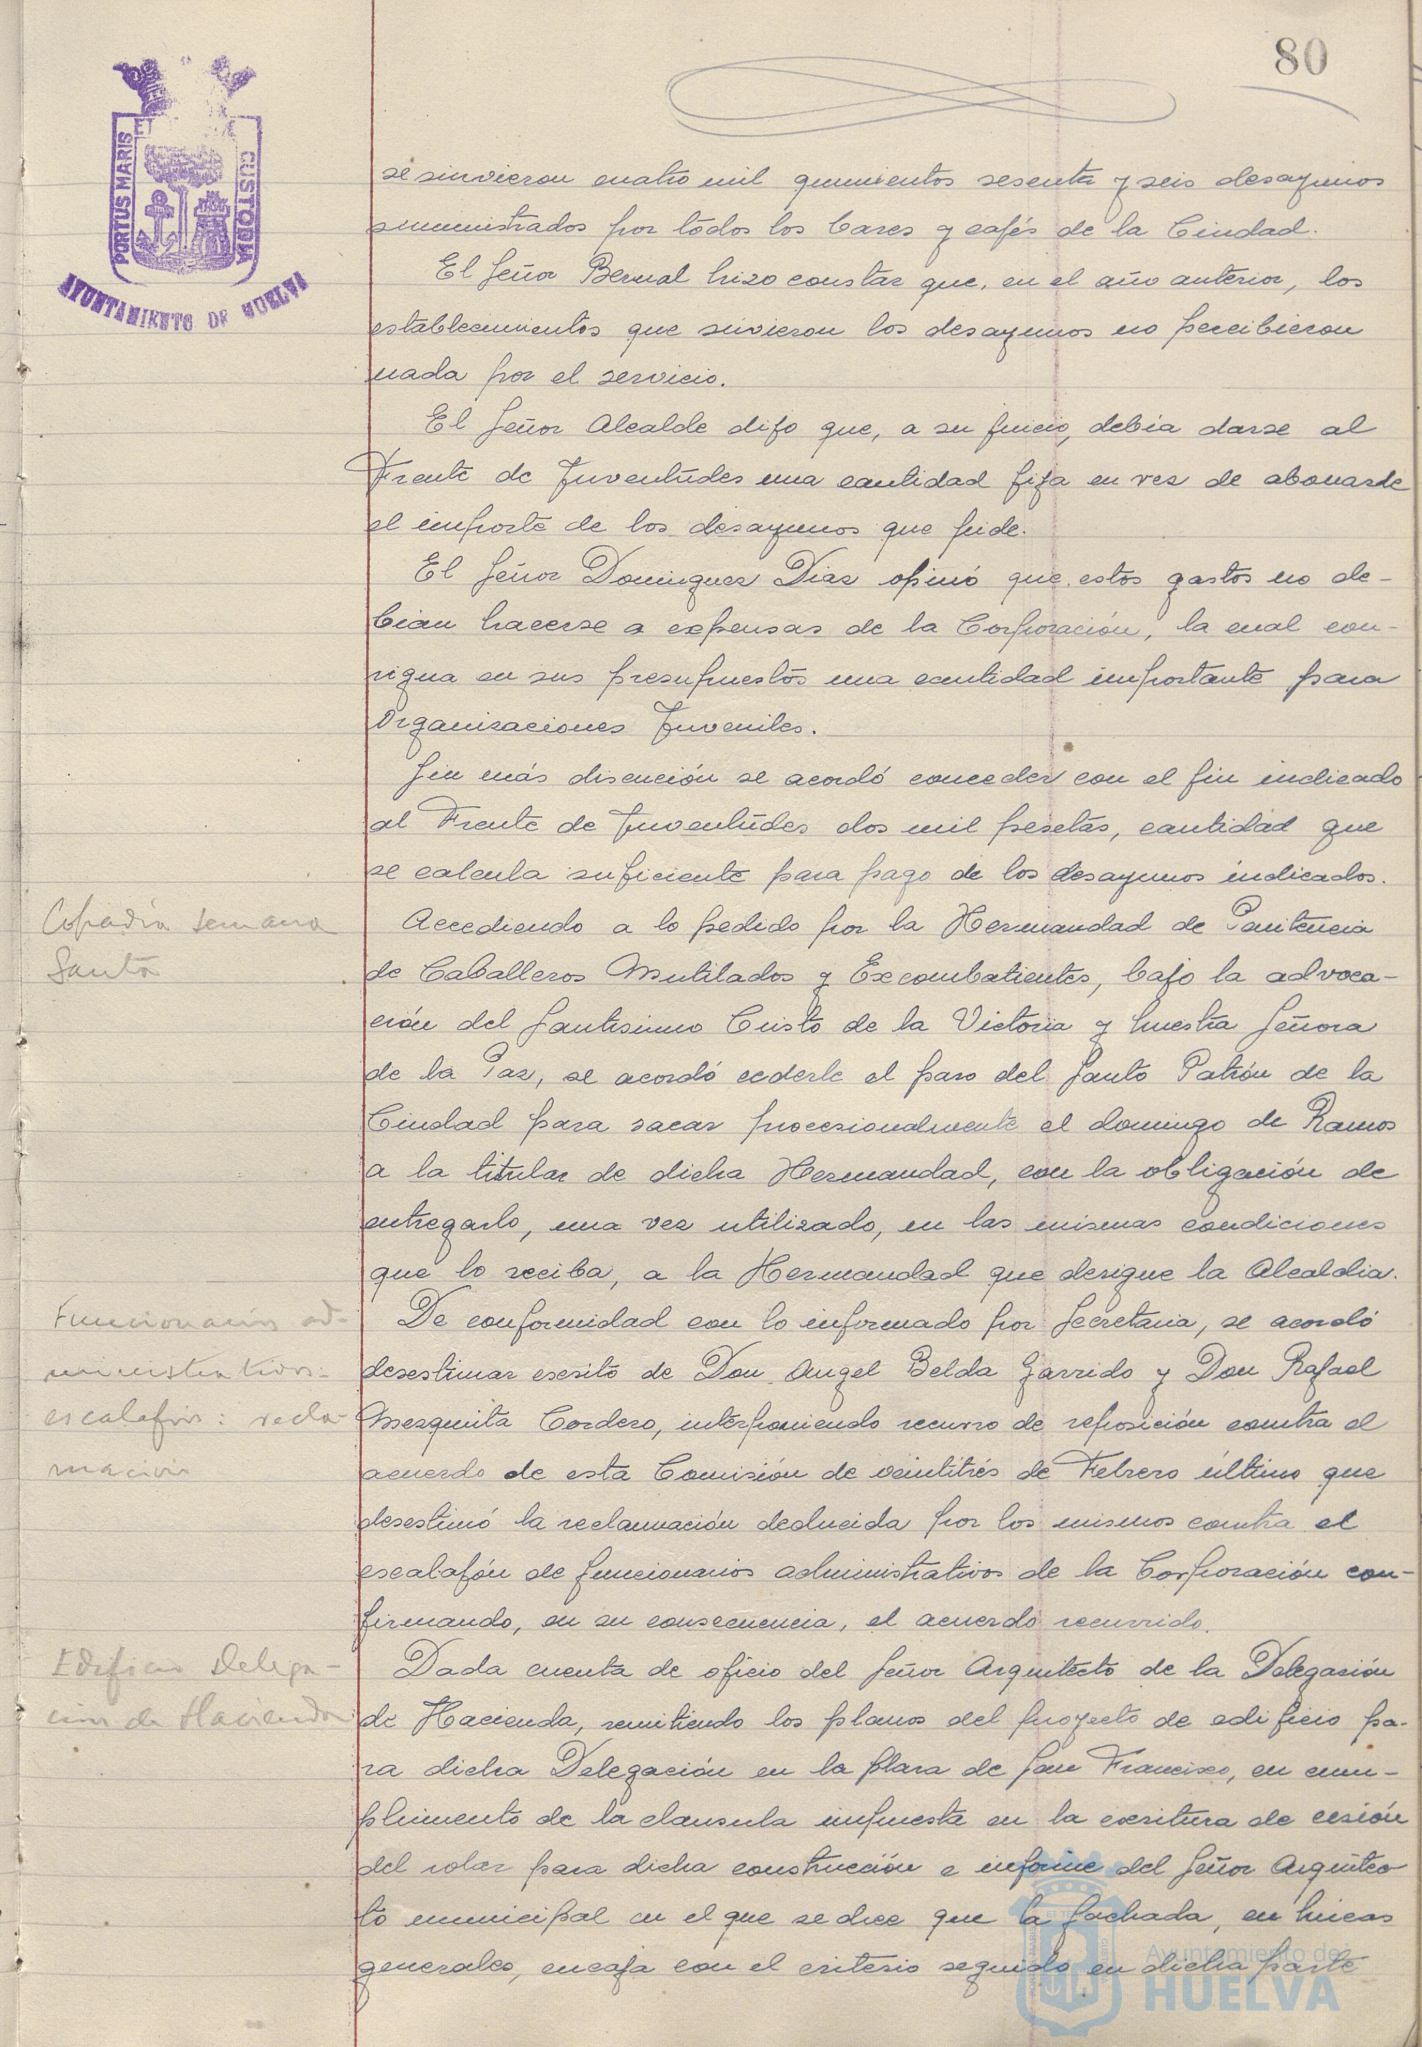 80
PORTUS MARIS ET CUSTODIA
AYUNTAMIENTO DE HUELVA
se sirvieron cuatro mil quinientos sesenta y seis desayunos
suministrados por todos los bares y cafés de la Ciudad.
El Señor Bernal hizo constar que, en el año anterior, los
establecimientos que sirvieron los desayunos no percibieron
nada por el servicio.
El Señor Alcalde dijo que, a su juicio, debía darse al
Frente de Juventudes una cantidad fija en vez de abonarle
el importe de los desayunos que pide.
El Señor Dominguez Diaz opinó que estos gastos no de-
bian hacerse a expensas de la Corporación, la cual con-
signa en sus presupuestos una cantidad importante para
Organizaciones Juveniles.
Sin más discusión se acordó conceder con el fin indicado
al Frente de Juventudes dos mil pesetas, cantidad que
se calcula suficiente para pago de los desayunos indicados.
Cofradía Semana
Santa
Accediendo a lo pedido por la Hermandad de Penitencia
de Caballeros Mutilados y Excombatientes, bajo la advoca-
ción del Santisimo Cristo de la Victoria y Nuestra Señora
de la Paz, se acordó cederle el paso del Santo Patrón de la
Ciudad para sacar procesionalmente el domingo de Ramos
a la titular de dicha Hermandad, con la obligación de
entregarlo, una vez utilizado, en las mismas condiciones
que lo reciba, a la Hermandad que designe la Alcaldia.
Funcionarios ad-
ministrativos-
escalafón: recla-
mación
De conformidad con lo informado por Secretaria, se acordó
desestimar escrito de Don Angel Belda Garrido y Don Rafael
Mezquita Cordero, interponiendo recurso de reposición contra el
acuerdo de esta Comisión de veintitrés de Febrero último que
desestimó la reclamación deducida por los mismos contra el
escalafón de funcionarios administrativos de la Corporación con-
firmando, en su consecuencia, el acuerdo recurrido.
Edificio Delega-
ción de Hacienda
Dada cuenta de oficio del Señor Arquitecto de la Delegación
de Hacienda, remitiendo los planos del proyecto de edificio pa-
ra dicha Delegación en la plaza de San Francisco, en cum-
plimiento de la clausula impuesta en la escritura de cesión
del solar para dicha construcción e informe del Señor Arquitec-
to municipal en el que se dice que la fachada, en lineas
generales, encaja con el criterio seguido en dicha parte
Ayuntamiento de
HUELVA